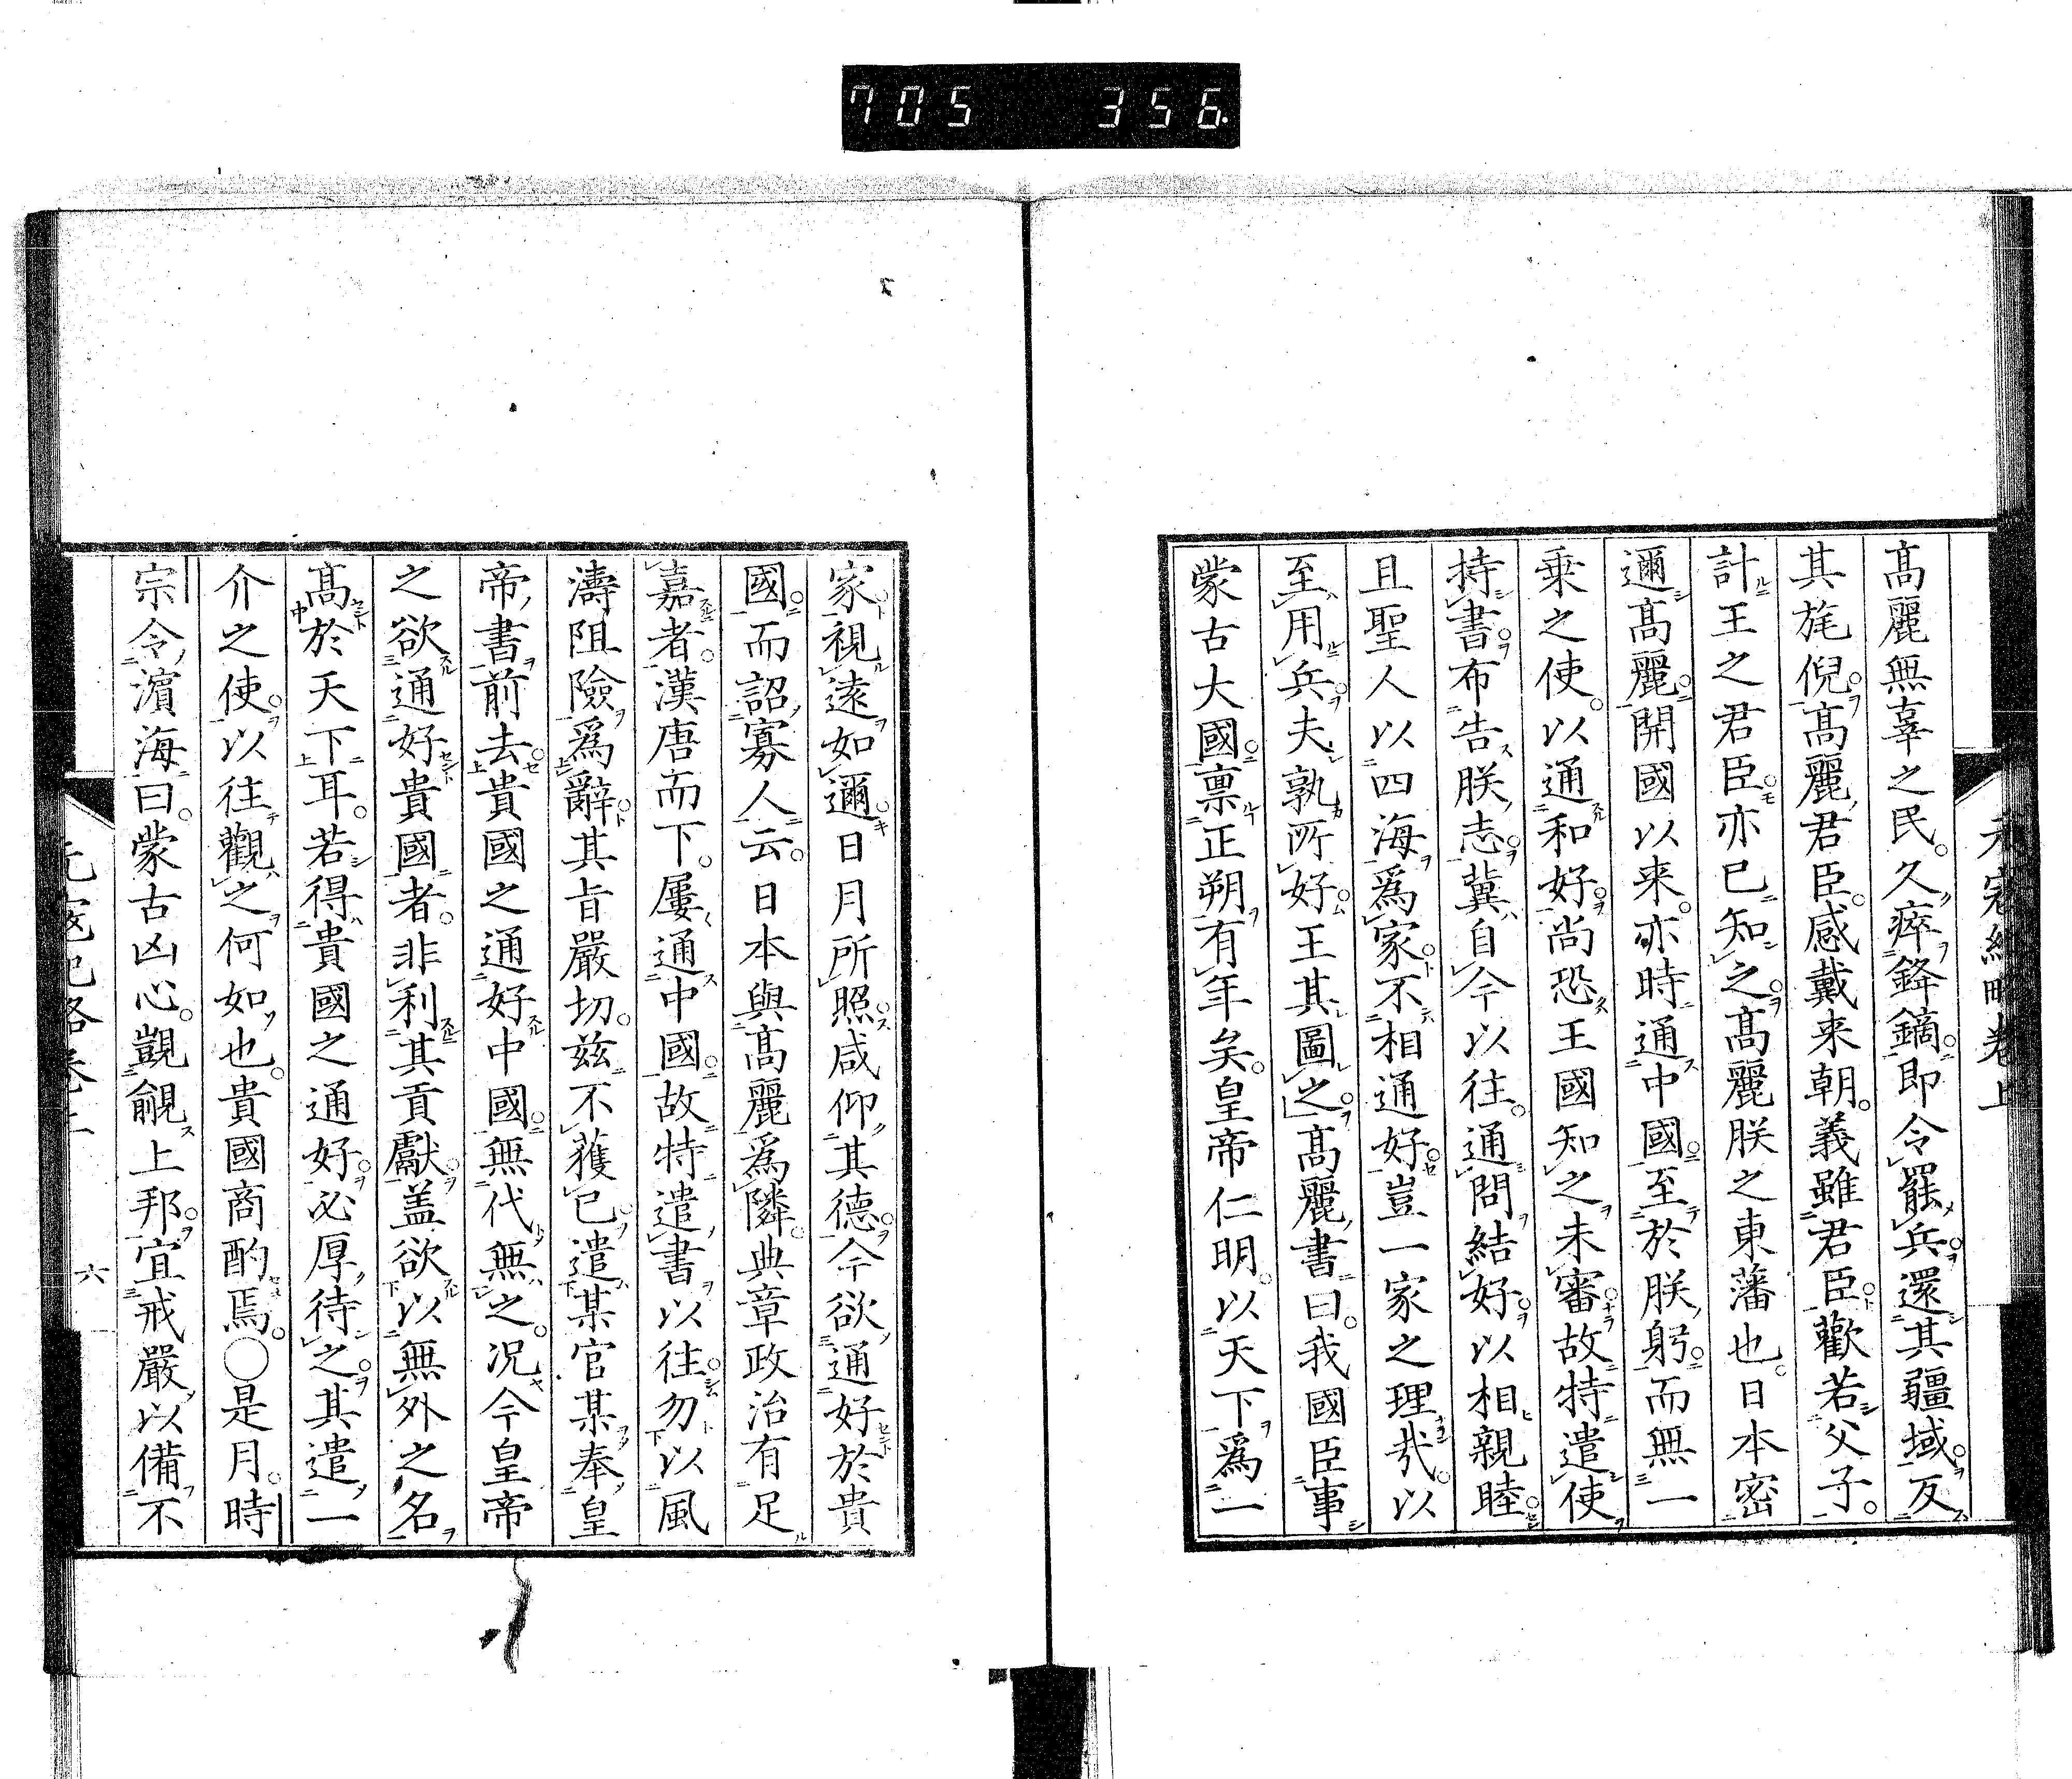 705 356
元寇紀略卷上
髙麗無辜之民。久瘁鋒鏑。即令罷兵。還其疆域。反
其旄倪。髙麗君臣。感戴来朝。義雖君臣。歡若父子。
計王之君臣。亦已知之。髙麗朕之東藩也。日本密
邇髙麗。開國以来。亦時通中國。至於朕躬。而無一
乗之使。以通和好。尚恐王國知之未審。故特遣使
持書。布告朕志。冀自今以往。通問結好。以相親睦。
且聖人以四海爲家。不相通好。豈一家之理㢤。以
至用兵。夫孰所好。王其圖之。髙麗書曰。我國臣事
蒙古大國。禀正朔有年矣。皇帝仁明。以天下爲一
家。視遠如邇。日月所照。咸仰其德。今欲通好於貴
國。而詔寡人云。日本與髙麗爲隣。典章政治有足
嘉者。漢唐而下。屢通中國。故特遣書以往。勿以風
濤阻險爲辭。其㫖嚴切。兹不獲已。遣某官某奉皇
帝書前去。貴國之通好中國。無代無之。况今皇帝
之欲通好貴國者。非利其貢獻。盖欲以無外之名
髙於天下耳。若得貴國之通好。必厚待之。其遣一
介之使。以往觀之何如也。貴國商酌焉。〇是月。時
宗令濵海曰。蒙古凶心。覬覦上邦。宜戒嚴以備不
元寇紀略卷上 六